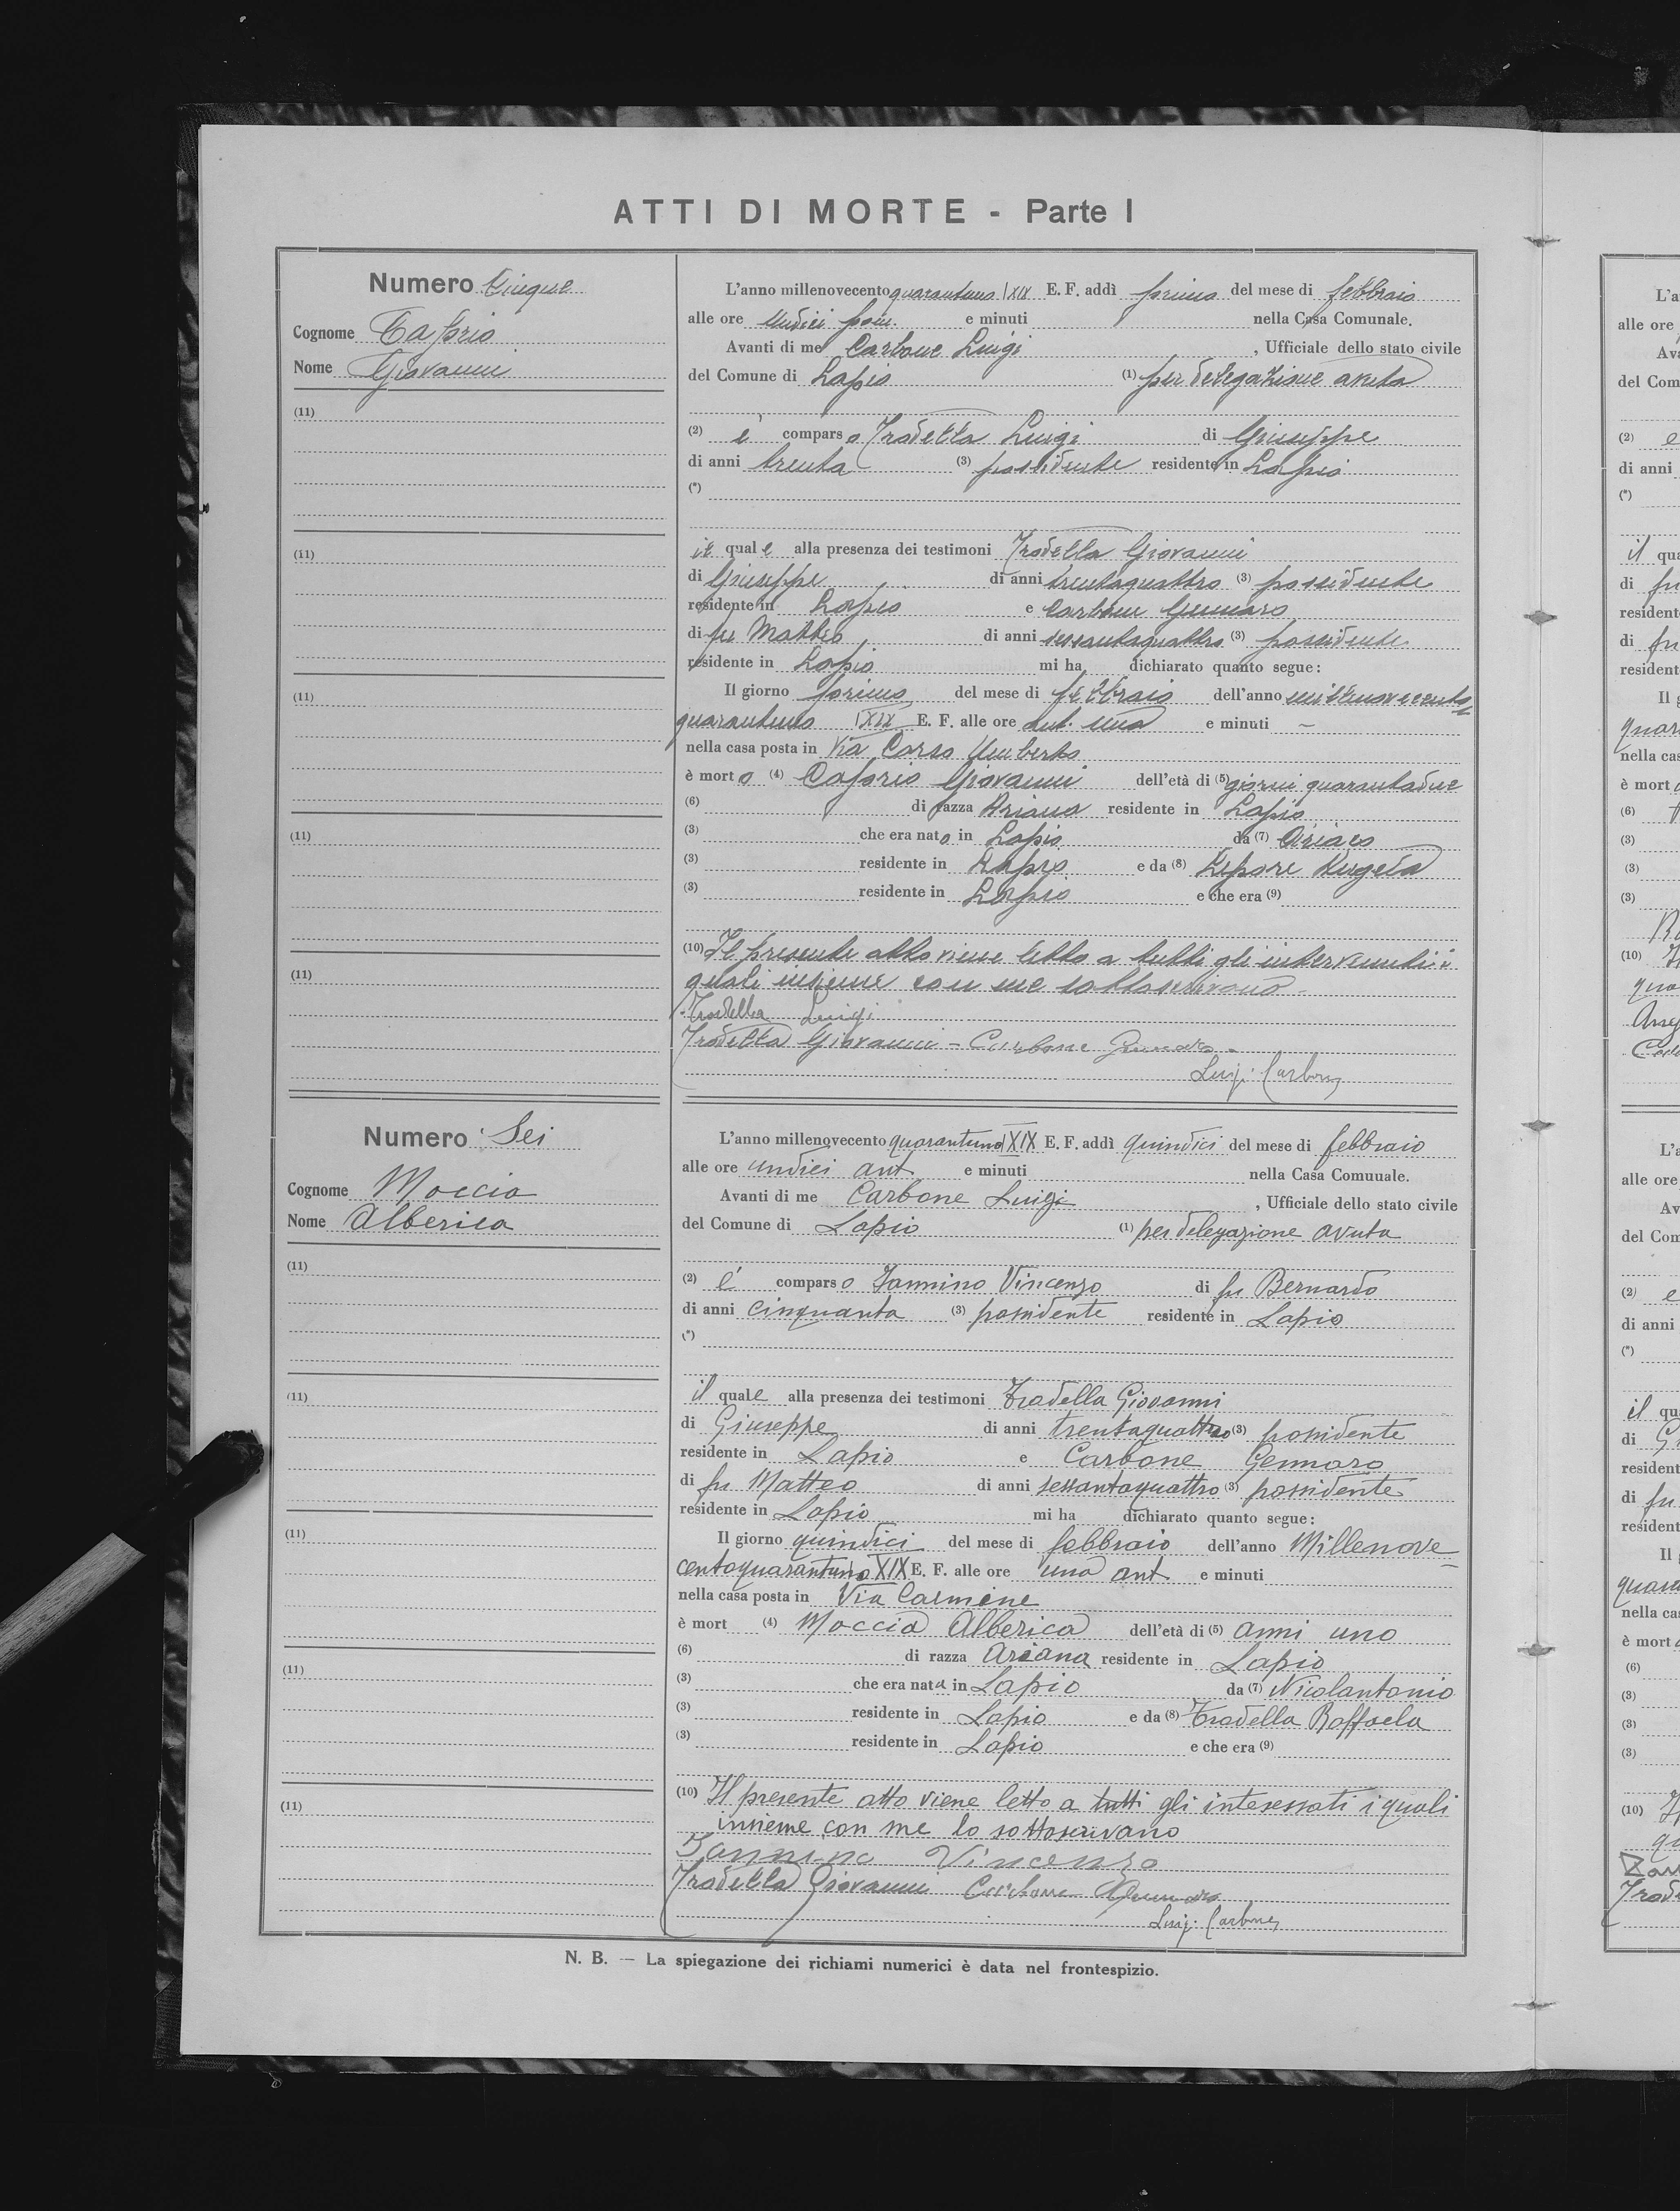 ATTI DI MORTE - Parte I
Numero Cinque
Cognome Caprio
Nome Giovanni
(11)
(11)
(11)
(11)
(11)
L'anno millenovecento quarantuno XIX E. F. addì primo del mese di febbraio
alle ore undici pom. e minuti nella Casa Comunale.
Avanti di me Carbone Luigi , Ufficiale dello stato civile
del Comune di Lapio (1) per delegazione avuta
(2) è comparso Trodella Luigi di Giuseppe
di anni trenta (3) possidente residente in Lapio
(*)
il quale alla presenza dei testimoni Trodella Giovanni
di Giuseppe di anni trentaquattro (3) possidente
residente in Lapio e Carbone Gennaro
di fu Matteo di anni sessantaquattro (3) possidente
residente in Lapio mi ha dichiarato quanto segue:
Il giorno primo del mese di febbraio dell'anno millenovecento
quarantuno XIX E. F. alle ore ant. una e minuti –
nella casa posta in Via Corso Umberto
è morto (4) Caprio Giovanni dell'età di (5) giorni quarantadue
(6) di razza Ariana residente in Lapio
(3) che era nato in Lapio da (7) Ciriaco
(3) residente in Lapio e da (8) Lepore Angela
(3) residente in Lapio e che era (9)
(10) Il presente atto viene letto a tutti gli intervenuti i
quali insieme con me sottoscrivono -
Trodella Luigi
Trodella Giovanni - Carbone Gennaro -
Luigi Carbone
Numero Sei
Cognome Moccia
Nome Alberica
(11)
(11)
(11)
(11)
(11)
L'anno millenovecento quarantuno XIX E. F. addì quindici del mese di febbraio
alle ore undici ant e minuti nella Casa Comuuale.
Avanti di me Carbone Luigi , Ufficiale dello stato civile
del Comune di Lapio (1) per delegazione avuta
(2) è comparso Iannino Vincenzo di fu Bernardo
di anni cinquanta (3) possidente residente in Lapio
(*)
il quale alla presenza dei testimoni Trodella Giovanni
di Giuseppe di anni trentaquattro (3) possidente
residente in Lapio e Carbone Gennaro
di fu Matteo di anni sessantaquattro (3) possidente
residente in Lapio mi ha dichiarato quanto segue:
Il giorno quindici del mese di febbraio dell'anno Millenove
centoquarantuno XIX E. F. alle ore una ant e minuti
nella casa posta in Via Carmine
è mort (4) Moccia Alberica dell'età di (5) anni uno
(6) di razza Ariana residente in Lapio
(3) che era nata in Lapio da (7) Nicolantonio
(3) residente in Lapio e da (8) Trodella Raffaela
(3) residente in Lapio e che era (9)
(10) Il presente atto viene letto a tutti gli interessati i quali
insieme con me lo sottoscrivano
Iannino Vincenzo
Trodella Giovanni Carbone Gennaro
Luigi Carbone
N. B. — La spiegazione dei richiami numerici è data nel frontespizio.